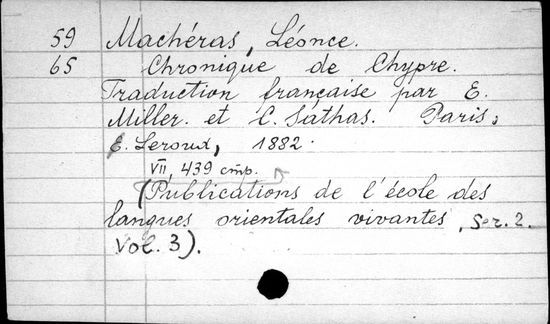 59 Machéras, Léonce.
65 Chronique de Chypre.
Traduction française par E.
Miller. et C. Sathas. Paris,
E. Leroux, 1882.
VII, 439 стр.
(Publications de l'école des
langues orientales vivantes, Ser. 2.
Vol. 3).